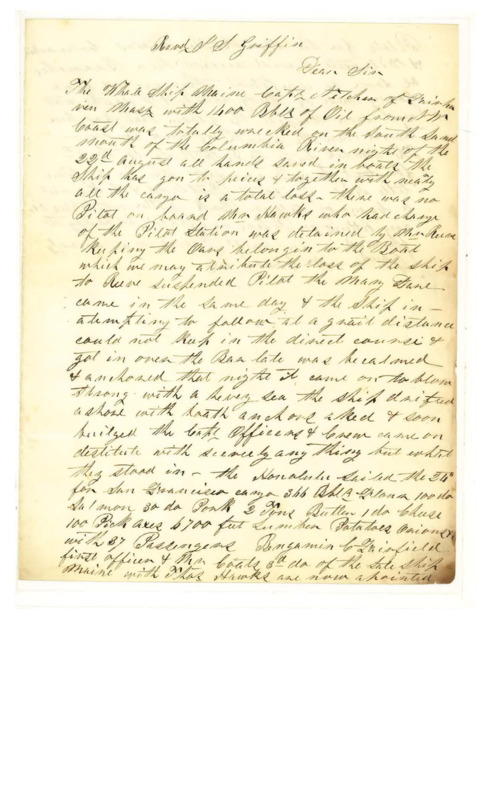 Revd J S Griffin
Dear Sir
The Whale Ship Maine Capt Netcher of Fairha
ven Mass with 1400 Bbls of Oil from N W
Coast was totally wrecked on the South Sands
mouth of the Columbia River night of the
22d August all hands saved in boats the
Ship has gon to pieces & together with nearly
all the cargo is a total loss - there was no
Pilot on board Mr Hawks who had charge
of the Pilot Station was detained by Mr Reeve
keeping the Oars belongin to the Boat
which we may attribute the loss of the ship
to Reeve suspended Pilot the Mary Dare
came in the same day & the Ship in
atempting to follow at a grait distance
could not keep in the direct course &
got in over the Bar late was becalmed
& anchored that night it came on to blow
strong with a hevey sea the ship drifted
ashore with boath anchors aked & soon
builged the Capt Officers & Crew came on
destitute with scercely any thing but what
they stood in - the Honolulu sailed the 24th
for San Francisco cargo 366 Bbls 100 do
Salmon 30 do Pork 2 Tons Butter 1 do Cheese
100 Pick axes 6700 feet Lumber Potatoes Onions &c
with 37 Passengers Bengamin C Fairfield
first officer & Mr Coats 3d do of the late ship
Maine with Thos Hawks are now apointed